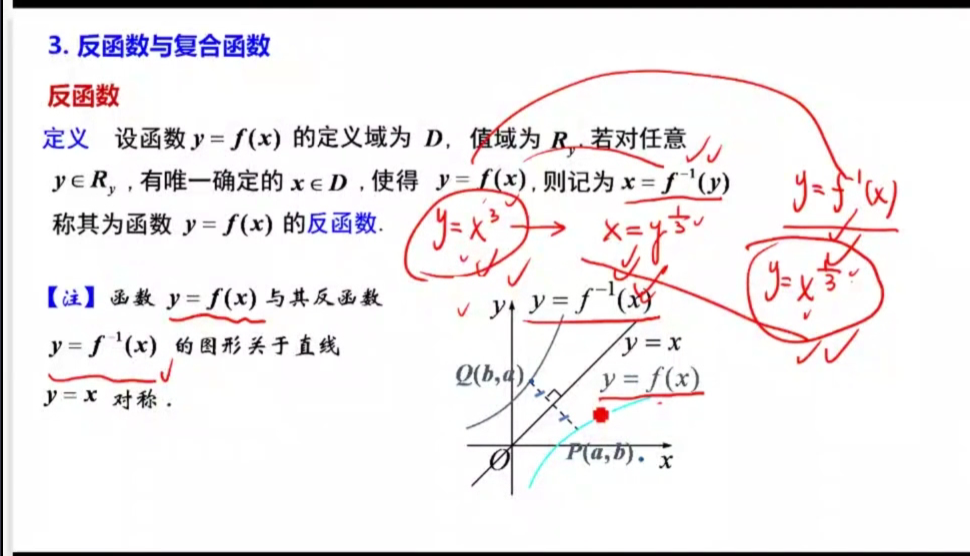 3. 反函数与复合函数
反函数
定义 设函数 y = f(x) 的定义域为 D, 值域为 R_y. 若对任意
y∈R_y , 有唯一确定的 x∈D , 使得 y = f(x), 则记为 x = f⁻¹(y)
y=f⁻¹(x)
称其为函数 y = f(x) 的反函数.
y=x³ → x=y^{1/3}
y=x^{1/3}
【注】函数 y = f(x) 与其反函数
y = f⁻¹(x) 的图形关于直线
y = x 对称 .
y
y = f⁻¹(x)
y = x
Q(b,a)
y = f(x)
P(a,b)
O
x